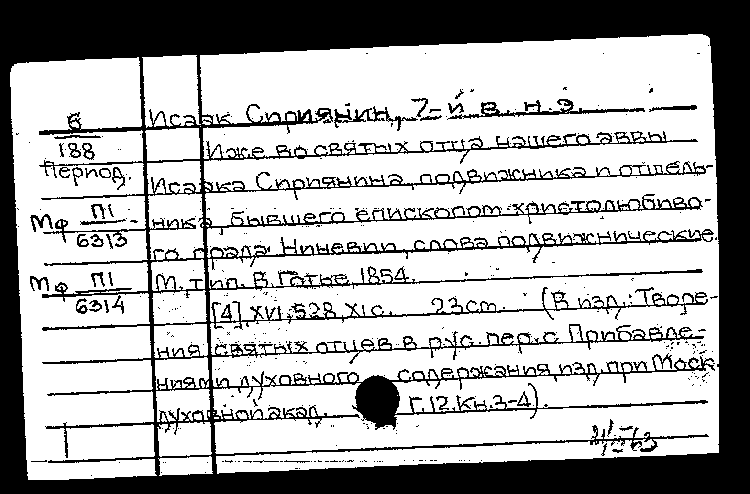 Б
188
Период.
Мф П1
6313
Мф П1
6314
Исаак Сириянин, 7-й в. н. э.
Иже во святых отца нашего аввы
Исаака Сириянина, подвижника и отшель-
ника, бывшего епископом христолюбиво-
го града Ниневии, слова подвижнические.
М., тип. В. Готье, 1854.
[4], XVI, 528, XI с. 23 см. (В изд.: Творе-
ния святых отцев в рус. пер. с Прибавле-
ниями духовного содержания, изд. при Моск.
духовной акад. Г. 12. Кн. 3-4).